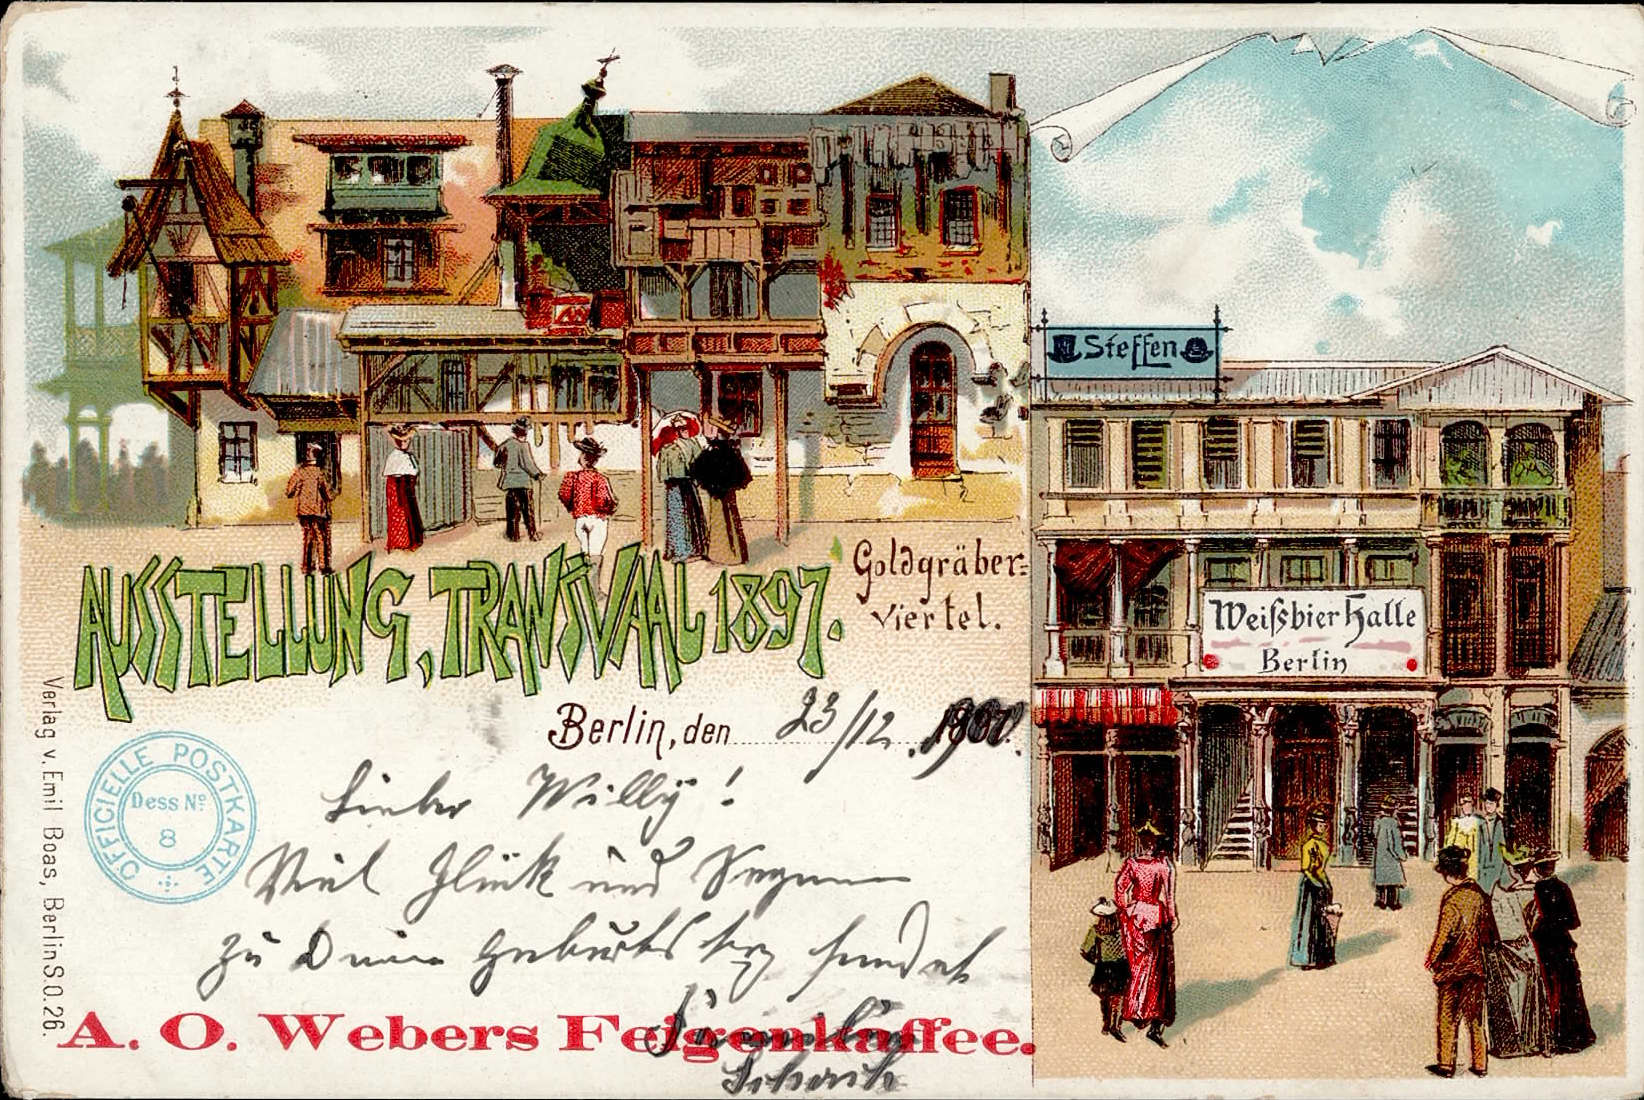 Steffen
Weißbier Halle
Berlin
AUSSTELLUNG, TRANSVAAL 1897.
Goldgräber=
viertel.
Berlin, den 23/12.
Lieber Willy!
Viel Glück und Segen
zu Deinem Geburtstag sendet
Familie
A. O. Webers Feigenkaffee.
OFFICIELLE POSTKARTE
Dess No.
8
Verlag v. Emil Boas, Berlin S.O. 26.